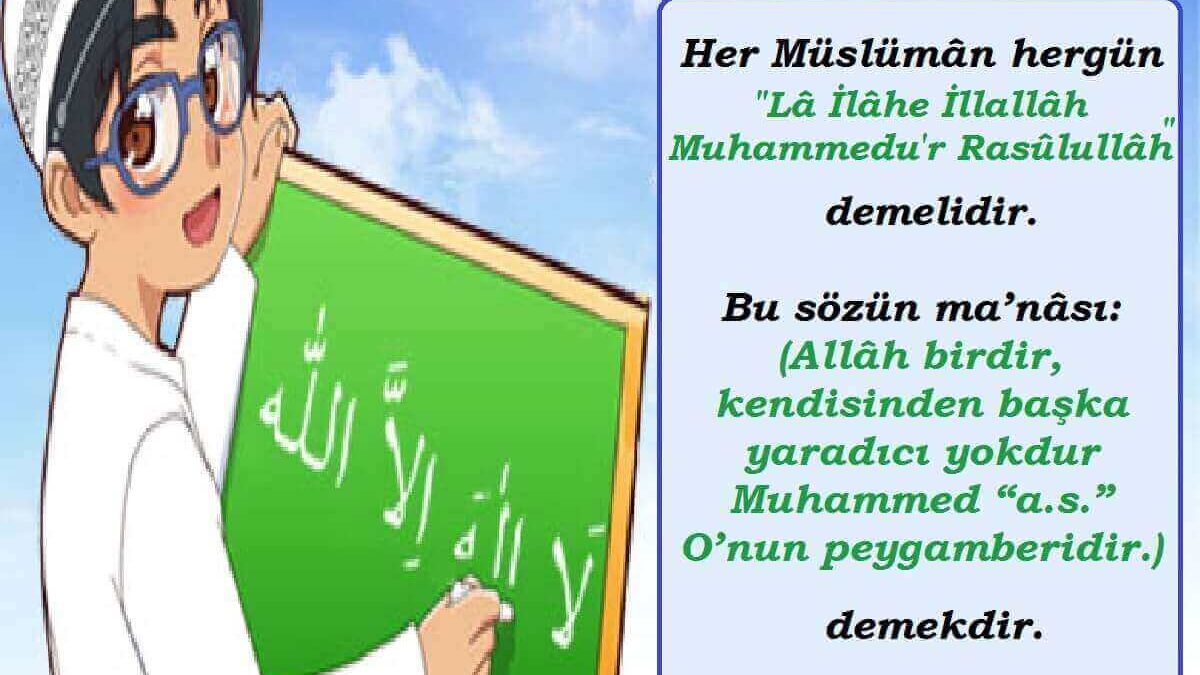 لَا إِلٰهَ إِلَّا اللّٰه
Her Müslümân hergün
"Lâ İlâhe İllallâh
Muhammedu'r Rasûlullâh"
demelidir.
Bu sözün ma’nâsı:
(Allâh birdir,
kendisinden başka
yaradıcı yokdur
Muhammed “a.s.”
O’nun peygamberidir.)
demekdir.